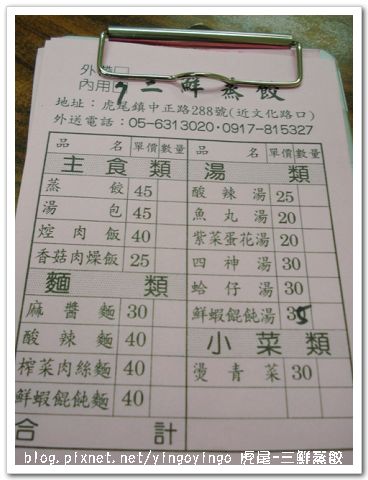 外帶□
內用□ 三鮮蒸餃
地址：虎尾鎮中正路288號(近文化路口)
外送電話：05-6313020·0917-815327
品名 單價 數量 品名 單價 數量
主食類 湯類
蒸餃 45 酸辣湯 25
湯包 45 魚丸湯 20
焢肉飯 40 紫菜蛋花湯 20
香菇肉燥飯 25 四神湯 30
麵類 蛤仔湯 30
麻醬麵 30 鮮蝦餛飩湯 35
酸辣麵 40 小菜類
榨菜肉絲麵 40 燙青菜 30
鮮蝦餛飩麵 40
合計
blog.pixnet.net/yingoyingo 虎尾-三鮮蒸餃